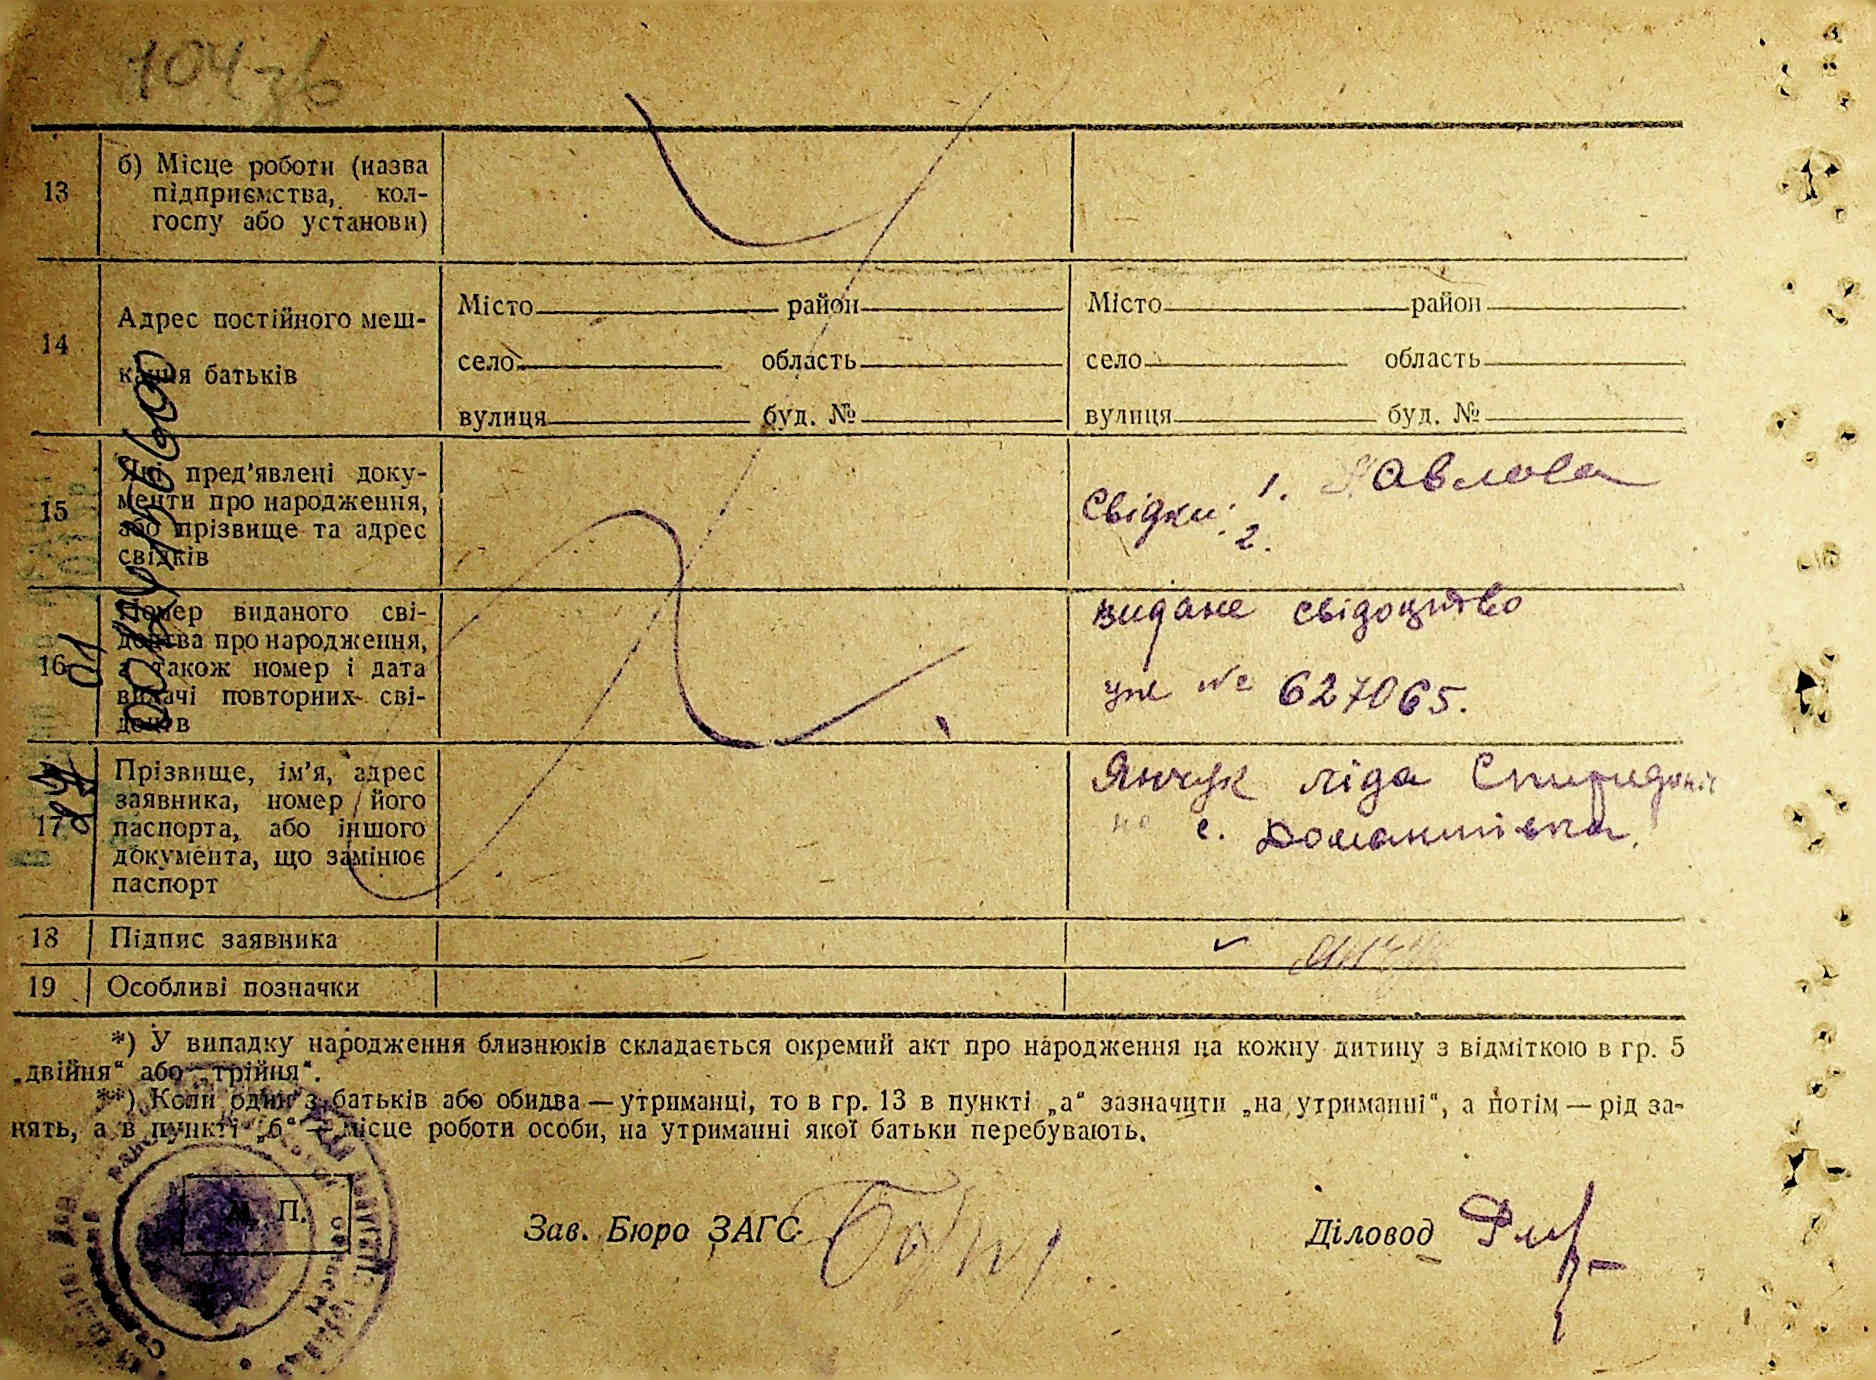 104 зб
13
б) Місце роботи (назва
підприємства, кол-
госпу або установи)
14
Адрес постійного меш-
кання батьків
Місто район
село область
вулиця буд. №
Місто район
село область
вулиця буд. №
15
Які пред'явлені доку-
менти про народження,
або прізвище та адрес
свідків
Свідки: 1. Павлова
2.
16
Номер виданого сві-
доцтва про народження,
а також номер і дата
видачі повторних сві-
доцтв
видане свідоцтво
№ 627065.
17
Прізвище, ім'я, адрес
заявника, номер його
паспорта, або іншого
документа, що замінює
паспорт
Янчук Ліда
с. Доманшівка.
18
Підпис заявника
19
Особливі позначки
*) У випадку народження близнюків складається окремий акт про народження на кожну дитину з відміткою в гр. 5
„двійня“ або „трійня“.
**) Коли один з батьків або обидва — утриманці, то в гр. 13 в пункті „а“ зазначити „на утриманні“, а потім — рід за-
нять, а в пункті „б“ — місце роботи особи, на утриманні якої батьки перебувають.
М. П.
Зав. Бюро ЗАГС
Діловод